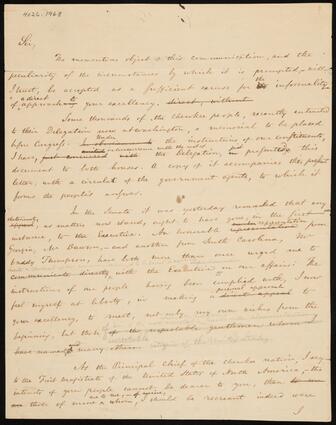 4026.1968
Sir,
The momentous object of this communication, and the
peculiarity of the circumstances by which it is prompted, will,
I trust, be accepted as a sufficient excuse for the informality
of a direct approach to your excellency. direct, without
Some thousands of the cherokee people, recently entrusted
to their Delegation now at Washington, a memorial to be placed
before Congress. Under the instructions of our constituents,
I have, with the rest of the delegation, presented this
document to both houses. A copy of it accompanies the present
letter, with a circular of the government agents, to which it
forms the people's answer.
In the Senate it was yesterday remarked that any
as matters now stand, ought to have in the first
instance, to the Executive. An honorable representation from
Georgia, Mr and another from South Carolina, Dr
Thompson, have both more than once urged me to
communicate directly with the Executive on our affairs. The
instructions of my people having been complied with, I now
feel myself at liberty, in making a direct appeal to
your excellency, to meet, not only my own wishes from the
beginning, but those of the respectable gentlemen whom I
have named many others.
As the Principal Chief of the cherokee nation, I say
to the First magistrate of the United States of North America, the
interests of your people cannot be dearer to you, than
are those of mine to me; I should be recreant indeed were
I